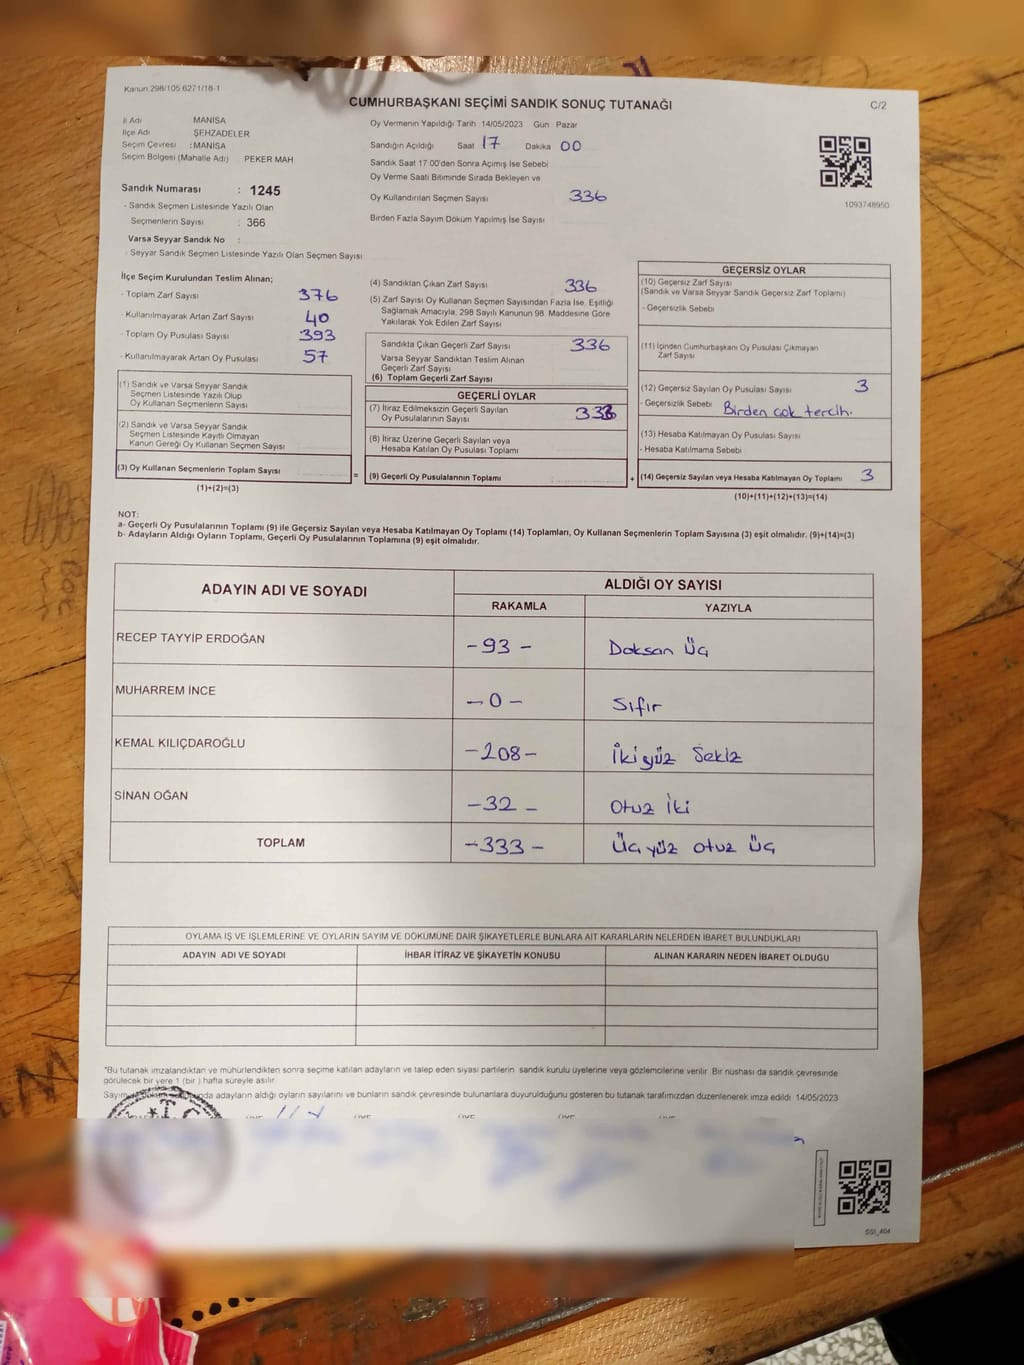 Kanun:298/105,6271/18-1
CUMHURBAŞKANI SEÇİMİ SANDIK SONUÇ TUTANAĞI
C/2
İl Adı MANİSA
İlçe Adı ŞEHZADELER
Seçim Çevresi :MANİSA
Seçim Bölgesi (Mahalle Adı) PEKER MAH
Sandık Numarası : 1245
- Sandık Seçmen Listesinde Yazılı Olan
Seçmenlerin Sayısı : 366
Varsa Seyyar Sandık No :
- Seyyar Sandık Seçmen Listesinde Yazılı Olan Seçmen Sayısı
Oy Vermenin Yapıldığı Tarih 14/05/2023 Gün Pazar
Sandığın Açıldığı Saat 17 Dakika 00
Sandık Saat 17 00'den Sonra Açımış İse Sebebi
Oy Verme Saati Bitiminde Sırada Bekleyen ve
Oy Kullandırılan Seçmen Sayısı 336
Birden Fazla Sayım Döküm Yapılmış İse Sayısı
1093748950
İlçe Seçim Kurulundan Teslim Alınan;
- Toplam Zarf Sayısı 376
- Kullanılmayarak Artan Zarf Sayısı 40
- Toplam Oy Pusulası Sayısı 393
- Kullanılmayarak Artan Oy Pusulası 57
(1) Sandık ve Varsa Seyyar Sandık
Seçmen Listesinde Yazılı Olup
Oy Kullanan Seçmenlerin Sayısı
(2) Sandık ve Varsa Seyyar Sandık
Seçmen Listesinde Kayıtlı Olmayan
Kanun Gereği Oy Kullanan Seçmen Sayısı
(3) Oy Kullanan Seçmenlerin Toplam Sayısı
(1)+(2)=(3)
=
(4) Sandıktan Çıkan Zarf Sayısı 336
(5) Zarf Sayısı Oy Kullanan Seçmen Sayısından Fazla İse, Eşitliği
Sağlamak Amacıyla, 298 Sayılı Kanunun 98. Maddesine Göre
Yakılarak Yok Edilen Zarf Sayısı
Sandıkta Çıkan Geçerli Zarf Sayısı 336
Varsa Seyyar Sandıktan Teslim Alınan
Geçerli Zarf Sayısı
(6) Toplam Geçerli Zarf Sayısı
GEÇERLİ OYLAR
(7) İtiraz Edilmeksizin Geçerli Sayılan
Oy Pusulalarının Sayısı 333
(8) İtiraz Üzerine Geçerli Sayılan veya
Hesaba Katılan Oy Pusulası Toplamı
(9) Geçerli Oy Pusulalarının Toplamı
+
GEÇERSİZ OYLAR
(10) Geçersiz Zarf Sayısı
(Sandık ve Varsa Seyyar Sandık Geçersiz Zarf Toplamı)
- Geçersizlik Sebebi
(11) İçinden Cumhurbaşkanı Oy Pusulası Çıkmayan
Zarf Sayısı
(12) Geçersiz Sayılan Oy Pusulası Sayısı 3
- Geçersizlik Sebebi Birden çok tercih.
(13) Hesaba Katılmayan Oy Pusulası Sayısı
- Hesaba Katılmama Sebebi
(14) Geçersiz Sayılan veya Hesaba Katılmayan Oy Toplamı 3
(10)+(11)+(12)+(13)=(14)
NOT:
a- Geçerli Oy Pusulalarının Toplamı (9) ile Geçersiz Sayılan veya Hesaba Katılmayan Oy Toplamı (14) Toplamları, Oy Kullanan Seçmenlerin Toplam Sayısına (3) eşit olmalıdır. (9)+(14)=(3)
b- Adayların Aldığı Oyların Toplamı, Geçerli Oy Pusulalarının Toplamına (9) eşit olmalıdır.
ADAYIN ADI VE SOYADI ALDIĞI OY SAYISI
RAKAMLA YAZIYLA
RECEP TAYYİP ERDOĞAN -93- Doksan Üç
MUHARREM İNCE -0- Sıfır
KEMAL KILIÇDAROĞLU -208- İkiyüz Sekiz
SİNAN OĞAN -32- Otuz İki
TOPLAM -333- Üçyüz otuz Üç
OYLAMA İŞ VE İŞLEMLERİNE VE OYLARIN SAYIM VE DÖKÜMÜNE DAİR ŞİKAYETLERLE BUNLARA AİT KARARLARIN NELERDEN İBARET BULUNDUKLARI
ADAYIN ADI VE SOYADI İHBAR İTİRAZ VE ŞİKAYETİN KONUSU ALINAN KARARIN NEDEN İBARET OLDUĞU
*Bu tutanak imzalandıktan ve mühürlendikten sonra seçime katılan adayların ve talep eden siyasi partilerin sandık kurulu üyelerine veya gözlemcilerine verilir. Bir nüshası da sandık çevresinde
görülecek bir yere 1 (bir ) hafta süreyle asılır.
adayların aldığı oyların sayılarını ve bunların sandık çevresinde bulunanlara duyurulduğunu gösteren bu tutanak tarafımızdan düzenlenerek imza edildi 14/05/2023
T.C
SSI_404